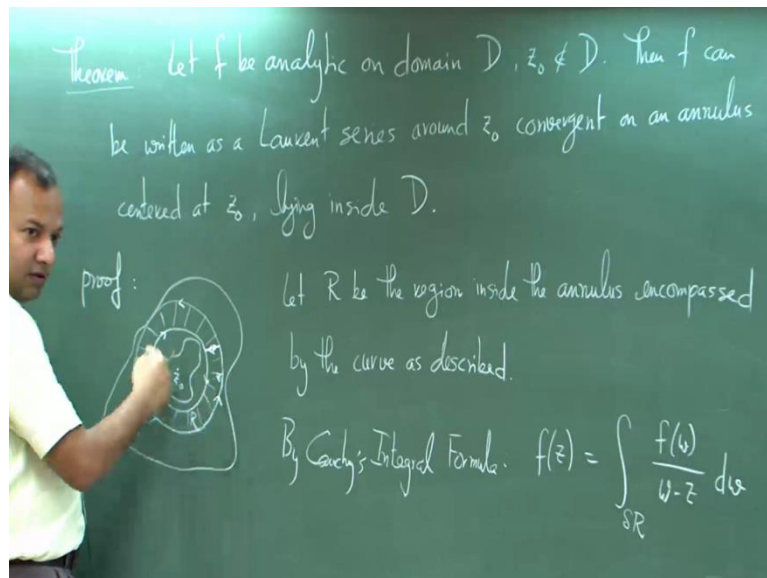 Theorem: Let f be analytic on domain D, z₀ ∉ D. Then f can
be written as a Laurent series around z₀ convergent on an annulus
centered at z₀, lying inside D.
proof:
z₀
R
Let R be the region inside the annulus encompassed
by the curve as described.
By Cauchy's Integral Formula. f(z) = ∫_{δR} f(w)/(w-z) dw